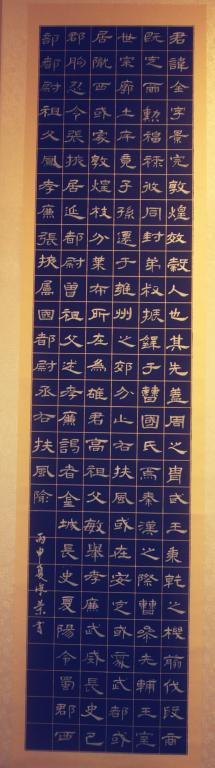 君諱全字景完敦煌效穀人也其先蓋周之胄武王秉乾之機翦伐殷商
既定爾勳福祿攸同封弟叔振鐸于曹國氏焉秦漢之際曹參夾輔王室
世宗廓土斥竟子孫遷于雍州之郊分止右扶風或在安定或處武都或
居隴西或家敦煌枝分葉布所在為雄君高祖父敏舉孝廉武威長史巴
郡朐忍令張掖居延都尉曾祖父述孝廉謁者金城長史夏陽令蜀郡西
部都尉祖父鳳孝廉張掖屬國都尉丞右扶風隃
丙申夏書